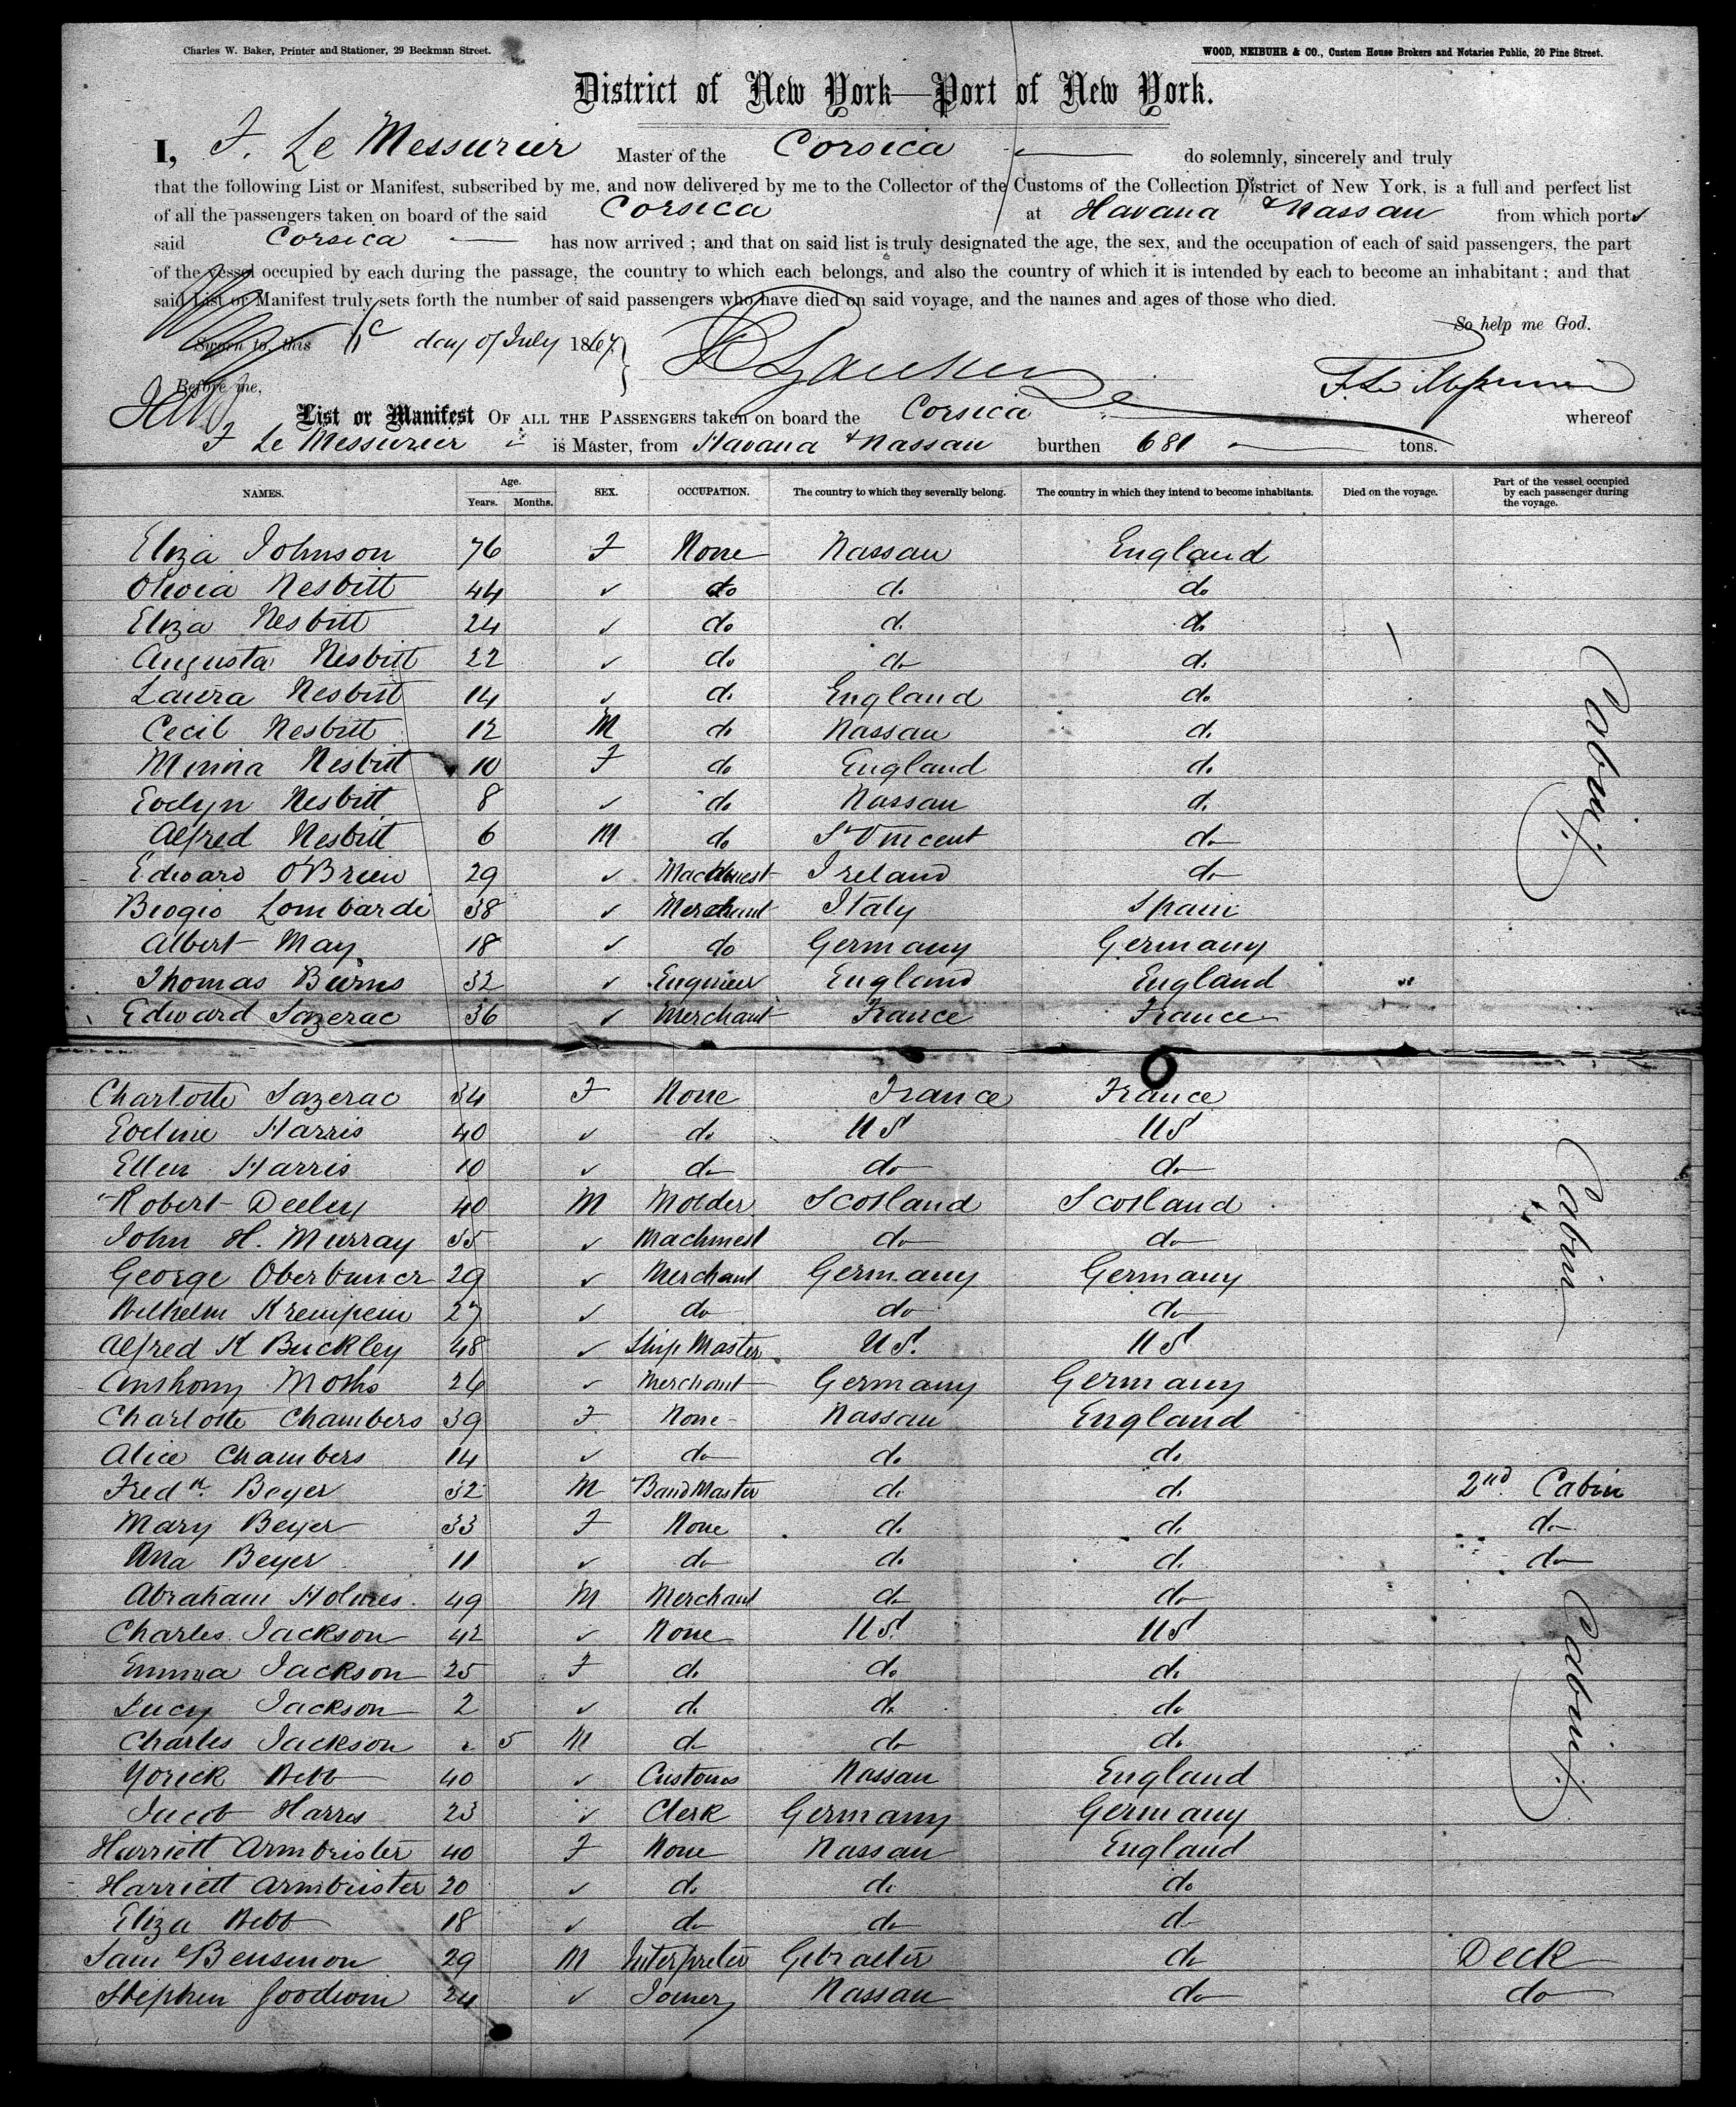 Charles W. Baker, Printer and Stationer, 29 Beekman Street.
WOOD, NEIBUHR & CO., Custom House Brokers and Notaries Public, 20 Pine Street.
District of New York—Port of New York.
I, F. Le Messurier Master of the Corsica do solemnly, sincerely and truly
that the following List or Manifest, subscribed by me, and now delivered by me to the Collector of the Customs of the Collection District of New York, is a full and perfect list
of all the passengers taken on board of the said Corsica at Havana & Nassau from which ports
said Corsica has now arrived ; and that on said list is truly designated the age, the sex, and the occupation of each of said passengers, the part
of the vessel occupied by each during the passage, the country to which each belongs, and also the country of which it is intended by each to become an inhabitant ; and that
said List or Manifest truly sets forth the number of said passengers who have died on said voyage, and the names and ages of those who died.
So help me God.
Sworn to, this day of July 1867
Before me,
List or Manifest OF ALL THE PASSENGERS taken on board the Corsica whereof
F Le Messurier is Master, from Havana & Nassau burthen 681 tons.
NAMES. Age. Years. Months. SEX. OCCUPATION. The country to which they severally belong. The country in which they intend to become inhabitants. Died on the voyage. Part of the vessel occupied by each passenger during the voyage.
Eliza Johnson 76 F None Nassau England
Olivia Nesbitt 44 ✓ do do do
Eliza Nesbitt 24 ✓ do do do
Augusta Nesbitt 22 ✓ do do do
Laura Nesbitt 14 ✓ do England do
Cecil Nesbitt 12 M do Nassau do
Minna Nesbitt 10 F do England do
Evelyn Nesbitt 8 ✓ do Nassau do
Alfred Nesbitt 6 M do St Vincent do
Edward O'Brien 29 ✓ Machinest Ireland do
Biogio Lombardi 38 ✓ Merchant Italy Spain
Albert May 18 ✓ do Germany Germany
Thomas Burns 32 ✓ Engineer England England
Edward Sazerac 36 ✓ Merchant France France
Cabin
Charlotte Sazerac 34 F None France France
Eveline Harris 40 ✓ do US US
Ellen Harris 10 ✓ do do do
Robert Deeley 40 M Molder Scotland Scotland
John H. Murray 35 ✓ Machinest do do
George 29 ✓ Merchant Germany Germany
Wilhelm Krempein 27 ✓ do do do
Alfred K Buckley 48 ✓ Ship Master US. US
Anthony Moths 26 ✓ Merchant Germany Germany
Charlotte Chambers 39 F None Nassau England
Alice Chambers 14 ✓ do do do
Cabin
Fredk Beyer 32 M Band Master do do 2nd Cabin
Mary Beyer 33 F None do do do
Ana Beyer 11 ✓ do do do do
Abraham Holmes 49 M Merchant do do
Charles Jackson 42 ✓ None US. US
Emma Jackson 25 F do do do
Lucy Jackson 2 ✓ do do do
Charles Jackson 5 M do do do
Yorick Webb 40 ✓ Customs Nassau England
Jacob Harris 23 ✓ Clerk Germany Germany
Harriett Armbrister 40 F None Nassau England
Harriett Armbrister 20 ✓ do do do
Eliza Webb 18 ✓ do do do
Cabin
Saml Bensimon 29 M Interpreter Gibralter do Deck
Stephen Goodwin 24 ✓ Joiner Nassau do do